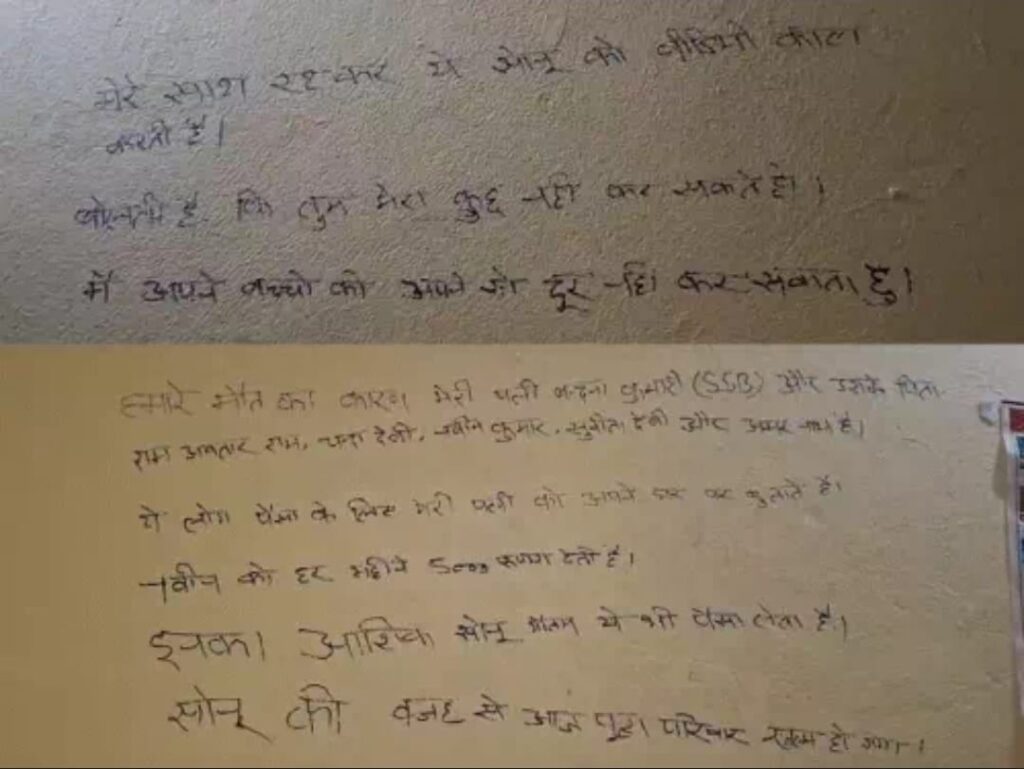 मेरे साथ रहकर ये सोनू को वीडियो काल
करती है।
बोलती है कि तुम मेरा कुछ नही कर सकते हो।
मैं अपने बच्चो को अपने से दूर नहि कर सकता हु।
हमारे मौत का कारण मेरी पत्नी कुमारी (SSB) और उसके पिता
राम अवतार राम, देवी, नवीन कुमार, सुनीता देवी और है।
ये लोग पैसा के लिए मेरी पत्नी को अपने घर पर बुलाते है।
नवीन को हर महीने 5000 रूपया देती है।
इनका आशिक सोनू ये भी पैसा लेता है।
सोनू की वजह से आज पुरा परिवार खत्म हो गया।